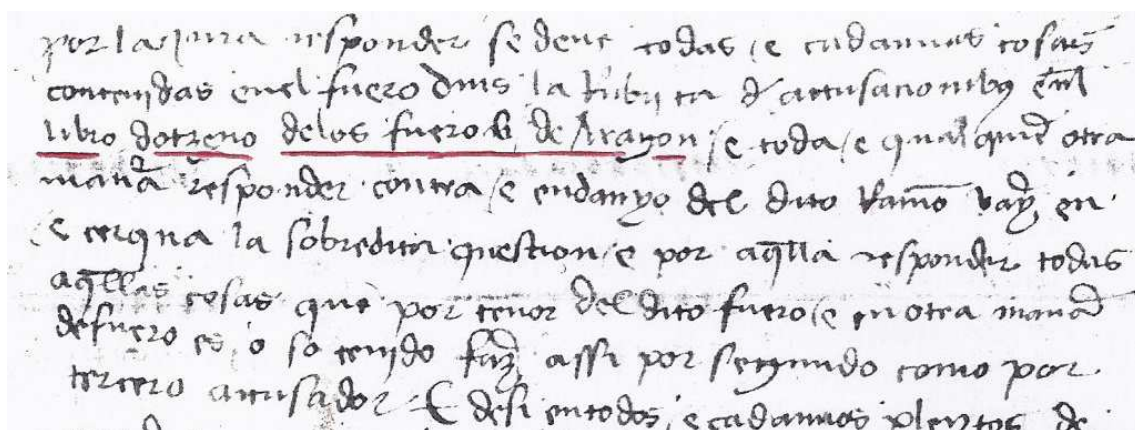 por la jura responder se deve todas e cadaunas cosas
contenidas enel fuero dius la Rubrica d' accusacionibus enel
libro dotzeno delos fueros de Aragon e toda e qualquier otra
manera responder contra e endanyo del dito Ramon en
e cerqua la sobredita question e por aqlla responder todas
aqllas cosas que por tenor del dito fuero e en otra mana
de fuero es o so tenido faz assi por segundo como por
tercero accusador E desi entodos e cadaunos pleytos de